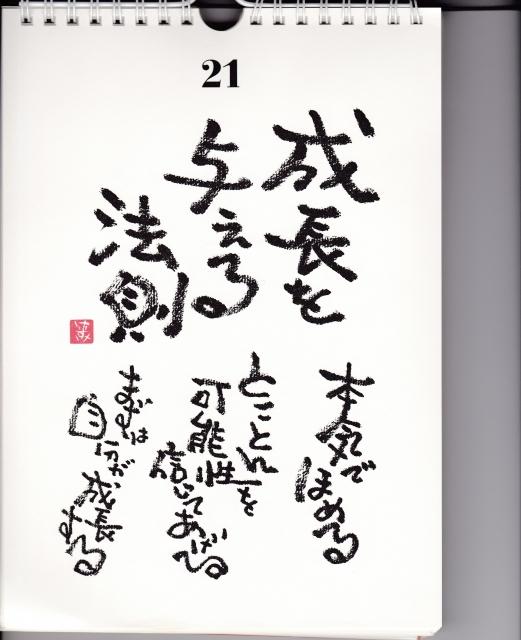 21
成長を
与える
法則
本気で
ほめる
とことん
可能性を
信じてあげる
まずは
自分が
成長
する